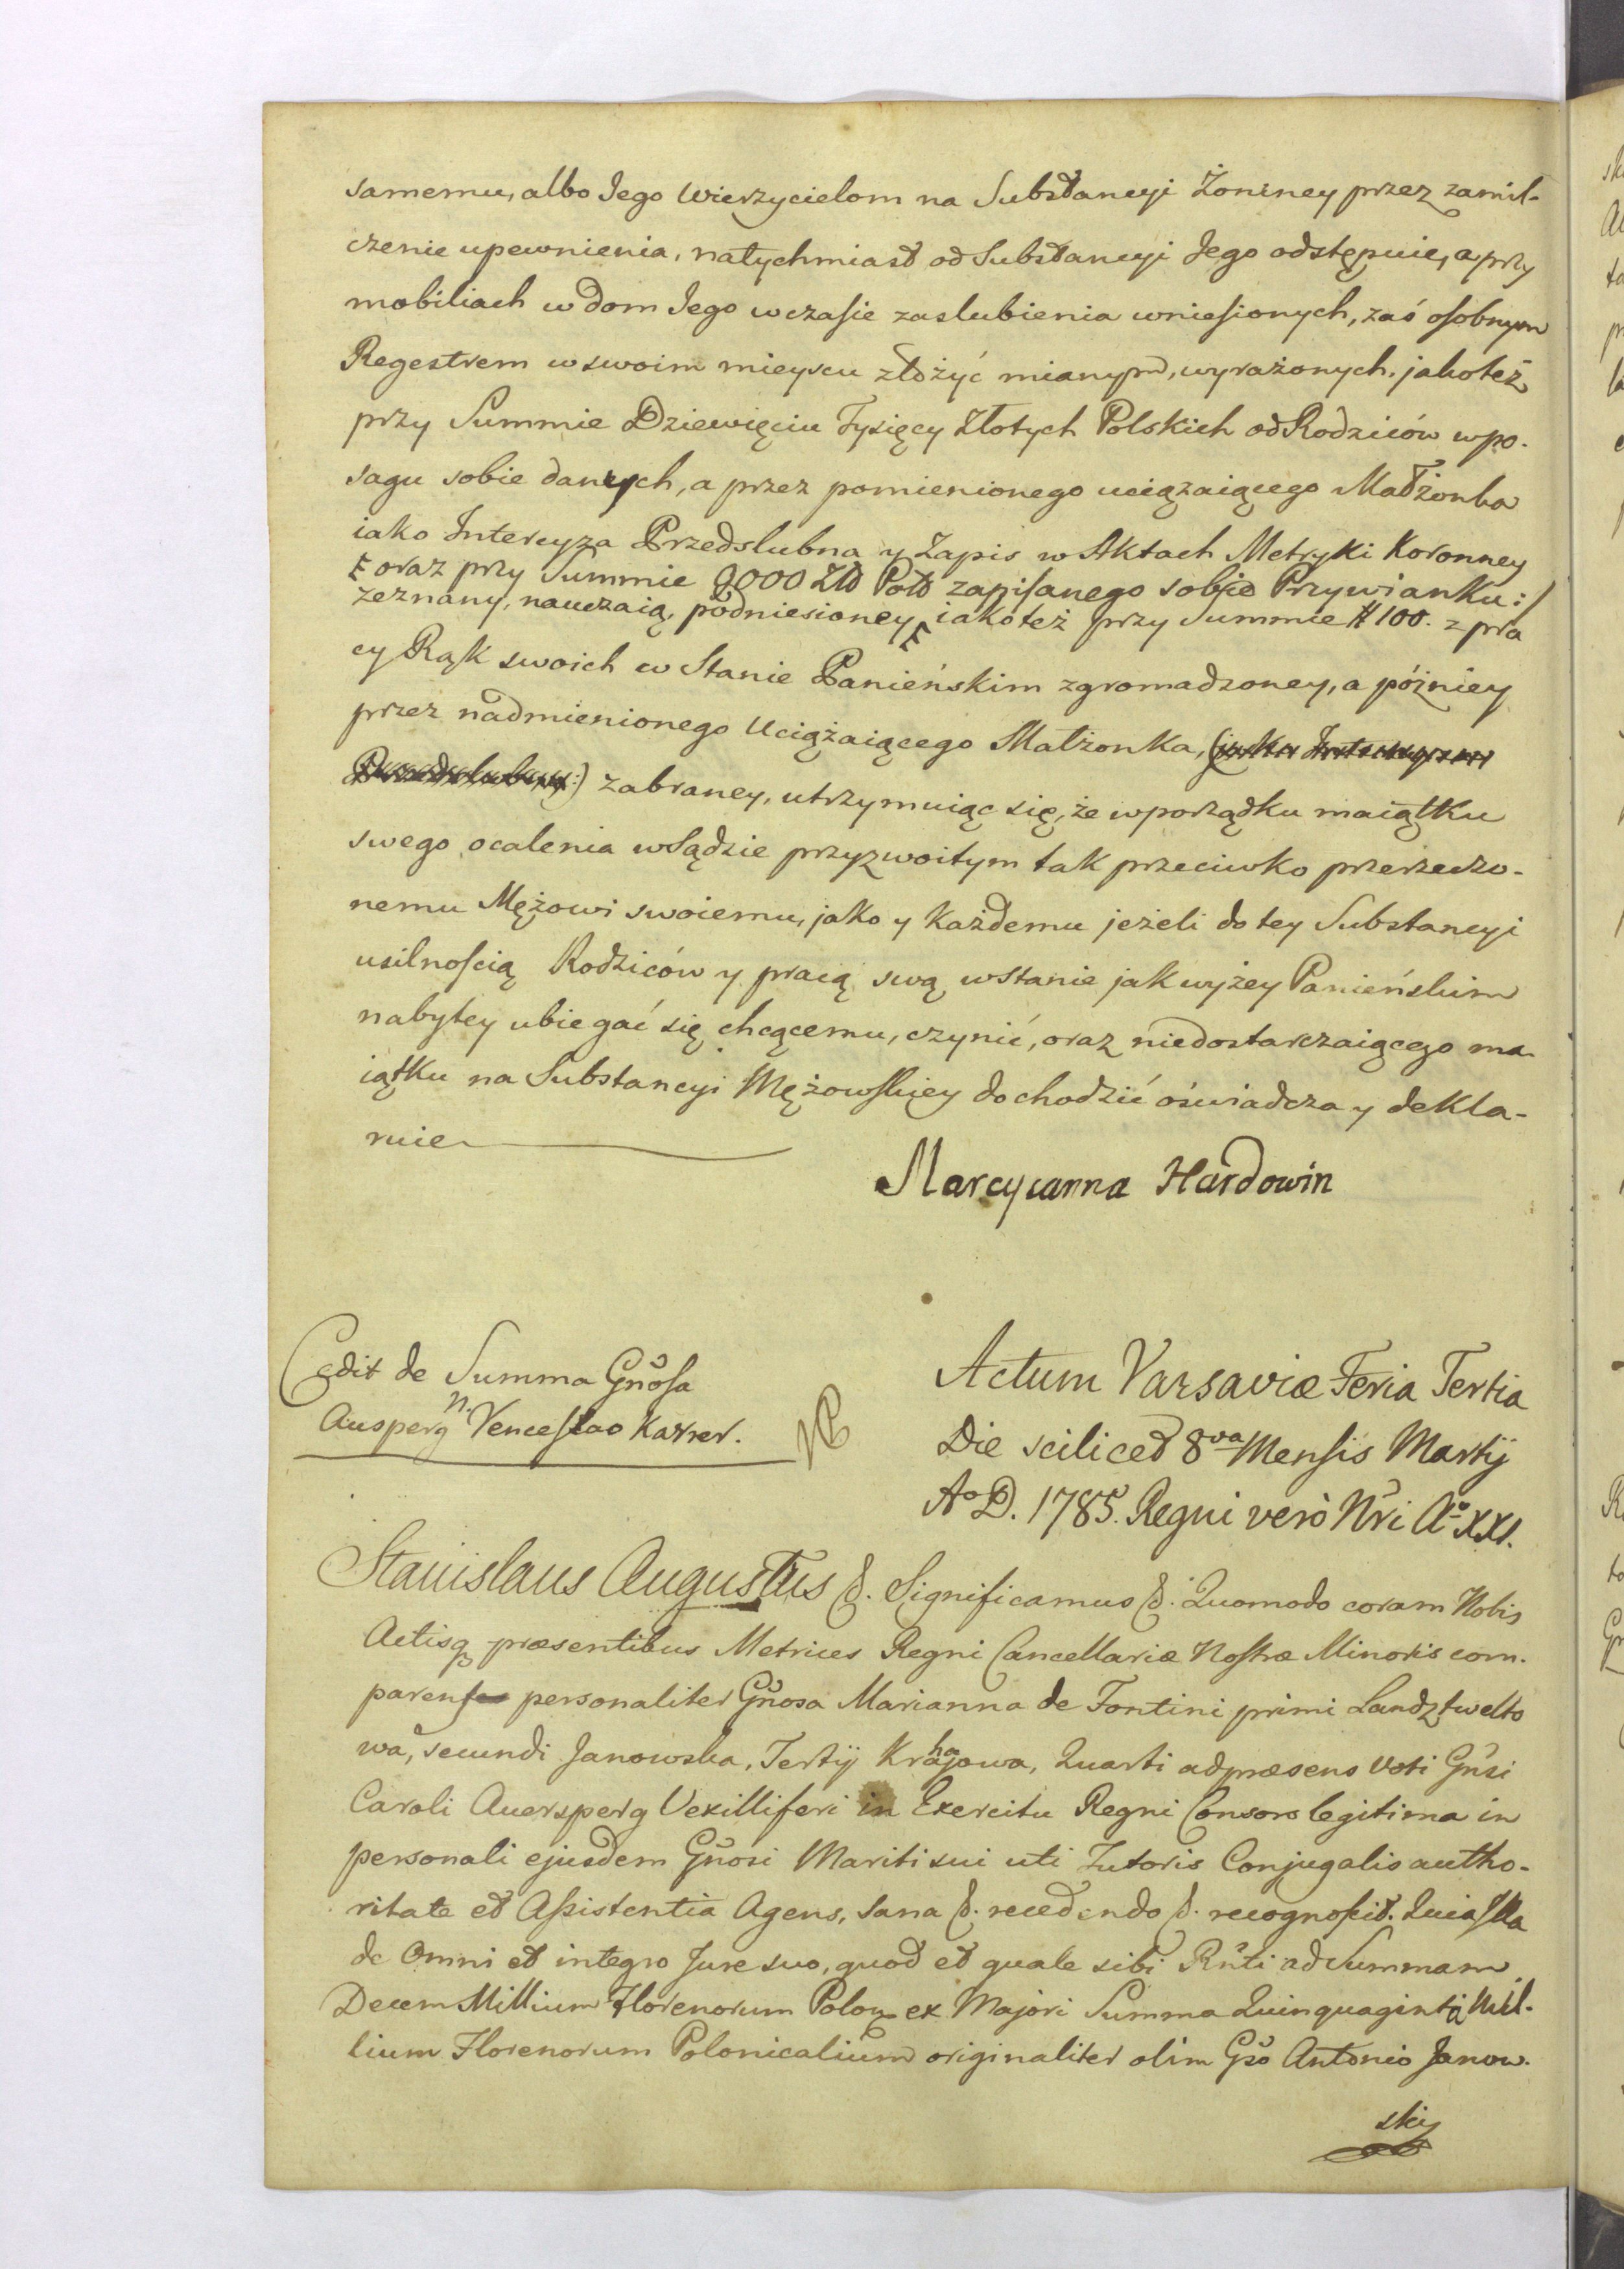 samemu, albo Jego Wierzycielom na Substancyi Żoniney przez zamil-
czenie upewnienia, natychmiast od Substancyi Jego odstępuie, a przy
mobiliach w dom Jego w czasie zaslubienia wniesionych, zaś osobnym
Regestrem w swoim mieyscu złożyć mianym, wyrażonych, jakoteż
przy Summie Dziewięciu Tysięcy Złotych Polskich od Rodziców w po-
sagu sobie danych, a przez pomienionego uciążaiącego Małżonka
iako Intercyza Przedslubna y Zapis w Aktach Metryki Koronney
oraz przy Summie 9000 Zło Pols zapisanego sobie Przywianku:/
zeznany, nauczaią, podniesioney, iakoteż przy Summie # 100. z pra
cy Rąk swoich w Stanie Panieńskim zgromadzoney, a późniey
przez nadmienionego Uciążaiącego Małżonka, (jako Intercyza
Przedslubna:) zabraney, utrzymuiąc się, że w porządku maiątku
swego ocalenia w Sądzie przyzwoitym tak przeciwko przerzeczo-
nemu Mężowi swoiemu, jako y Każdemu jeżeli do tey Substancyi
usilnością Rodziców y pracą swą w Stanie jak wyżey Panieńskim
nabytey ubiegać się chcącemu, czynić, oraz niedostarczaiącego ma-
iątku na Substancyi Mężowskiey dochodzić oświadcza y dekla-
ruie
Marcyanna Hardowin
Cedit de Summa Gnosa
Ausperg n. Venceslao Karner.
NB
Actum Varsaviæ Feria Tertia
Die scilicet 8va Mensis Martij
Ao D. 1785. Regni verò Nri Ao XXI.
Stanislaus Augustus &. Significamus &. Quomodo coram Nobis
Actisq præsentibus Metrices Regni Cancellariæ Nostræ Minoris com-
parens personaliter Gnosa Marianna de Fontini primi Landztwelto
wa, secundi Janowska, Tertij Krahajowa, Quarti ad præsens Voti Gnsi
Caroli Auersperg Vexilliferi in Exercitu Regni Consors legitima in
personali ejusdem Gnosi Mariti sui uti Tutoris Conjugalis autho-
ritate et Assistentia Agens, sana &. recedendo &. recognoscit. Quia Ipsa
de Omni et integro Jure suo, quod et quale sibi Rnti ad Summam
Decem Millium Florenorum Polon ex Majori Summa Quinquaginta Mil-
lium Florenorum Polonicalium originaliter olim Gso Antonio Janow-
skij